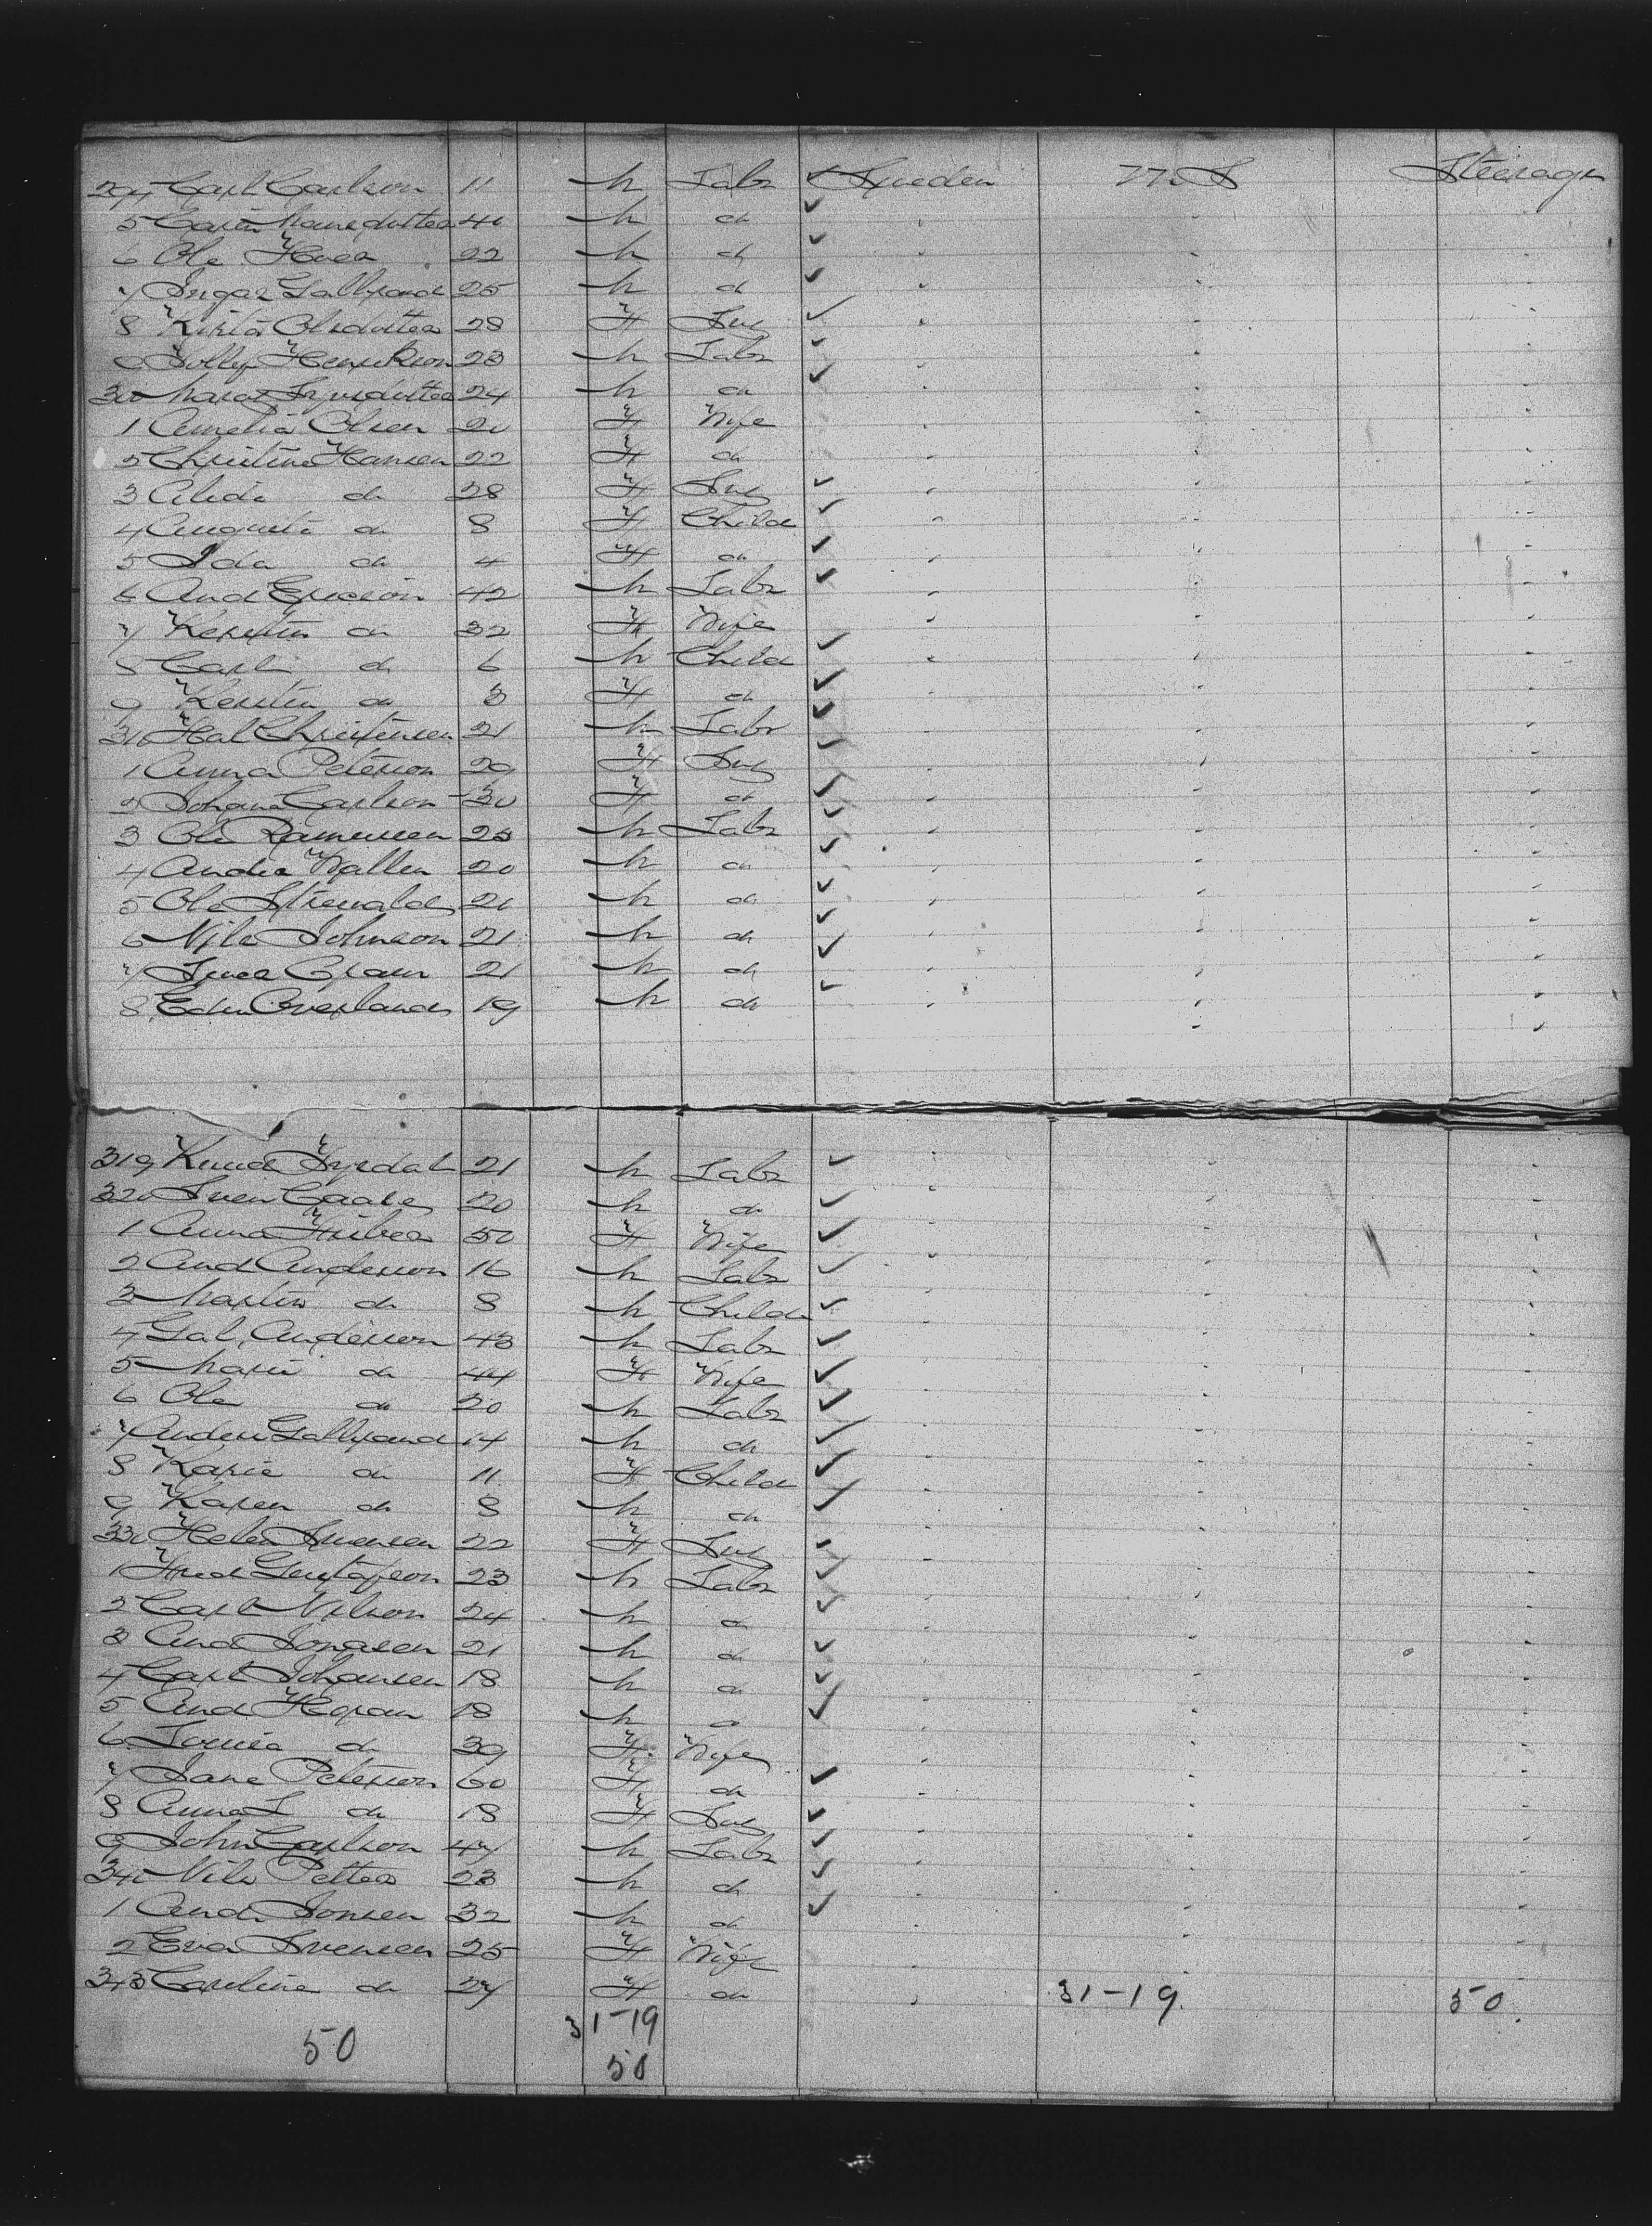 294 Carl Carlson 11 m Labr ✓ Sweden U.S Steerage
5 Carin Hansdotter 40 m do ✓ " " "
6 Ole 22 m do ✓ " " "
7 Ingar Gullbrand 25 m do ✓ " " "
8 Kirsta Olsdotter 28 F Svg ✓ " " "
9 Henrikson 23 m Labr ✓ " " "
300 24 m do ✓ " " "
1 Amelia Olsen 20 F Wife " " "
2 Christine Hansen 22 F do " " "
3 Alida do 28 F Svg ✓ " " "
4 Augusta do 8 F Child ✓ " " "
5 Ida do 4 F do ✓ " " "
6 And Ericson 42 m Labr ✓ " " "
7 Kersten do 32 F Wife " " "
8 Carl do 6 m Child ✓ " " "
9 Kersten do 3 F do ✓ " " "
310 Hal Christensen 21 m Labr ✓ " " "
1 Anna Peterson 29 F Svg ✓ " " "
2 Johana Carlson 30 F do ✓ " " "
3 Ole Rasmussen 23 m Labr ✓ " " "
4 Wallen 20 m do ✓ " " "
5 Ole 20 m do ✓ " " "
6 Nils Johnson 21 m do ✓ " " "
7 21 m do ✓ " " "
8 Overland 19 m do ✓ " " "
319 Knud 21 m Labr ✓ " " "
320 Sven 20 m do ✓ " " "
1 Anna 50 F Wife ✓ " " "
2 And Anderson 16 m Labr ✓ " " "
3 Martin do 8 m Child ✓ " " "
4 Anderson 43 m Labr ✓ " " "
5 Marie do 44 F Wife ✓ " " "
6 Ole do 20 m Labr ✓ " " "
7 Anders Gullbrand 14 m do ✓ " " "
8 Karie do 11 F Child ✓ " " "
9 Karen do 8 m do ✓ " " "
330 Helen Svensen 22 F Svg ✓ " " "
1 Fred Gustafson 23 m Labr ✓ " " "
2 Carl Nilson 24 m do ✓ " " "
3 And Jonasen 21 m do ✓ " " "
4 Carl Johansen 18 m do ✓ " " "
5 And 18 m do ✓ " " "
6 Louisa do 39 F Wife " " "
7 Jane Peterson 60 F do ✓ " " "
8 Anna L do 18 F Svg ✓ " " "
9 John Carlson 47 m Labr ✓ " " "
340 Nils Petter 23 m do ✓ " " "
1 And. Jonsen 32 m do ✓ " " "
2 Eva Svensen 25 F Wife " " "
343 Caroline do 27 F do " 31-19 50
31-19
50 50